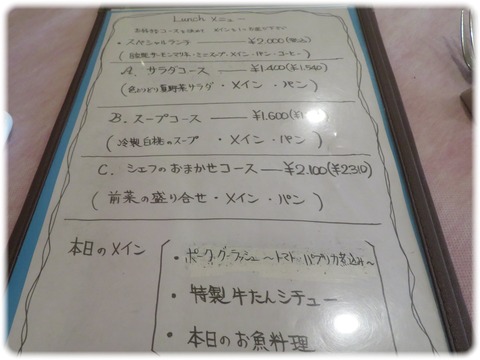 Lunch メニュー
・スペシャルランチ ¥2,000(税込)
(自家製サーモンマリネ・ミニスープ・メイン・パン・コーヒー)
A. サラダコース ¥1,400(¥1,540)
(色とりどり夏野菜サラダ・メイン・パン)
B. スープコース ¥1,600
(冷製白桃のスープ・メイン・パン)
C. シェフのおまかせコース ¥2,100(¥2310)
(前菜の盛り合せ・メイン・パン)
本日のメイン
・ポークグーラッシュ〜トマトパプリカ煮込み〜
・特製牛たんシチュー
・本日のお魚料理